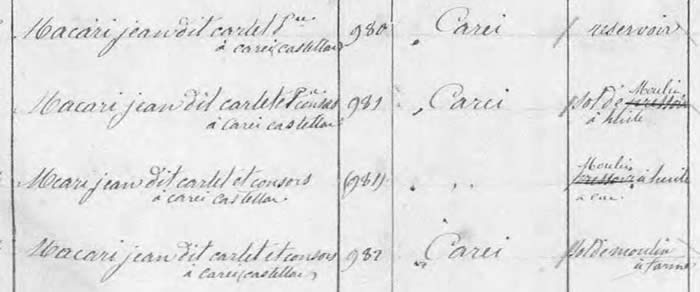 Macari jean dit cartet 980 Carei reservoir
à carei (castellar)
Macari jean dit cartet et consors 981 Carei sol de pressoir Moulin
à carei castellar à huile
Macari jean dit cartet et consors (981) " " pressoir Moulin à huile
à carei castellar à eau
Macari jean dit cartet et consors 982 Carei sol de moulin
à carei (castellar) à farine